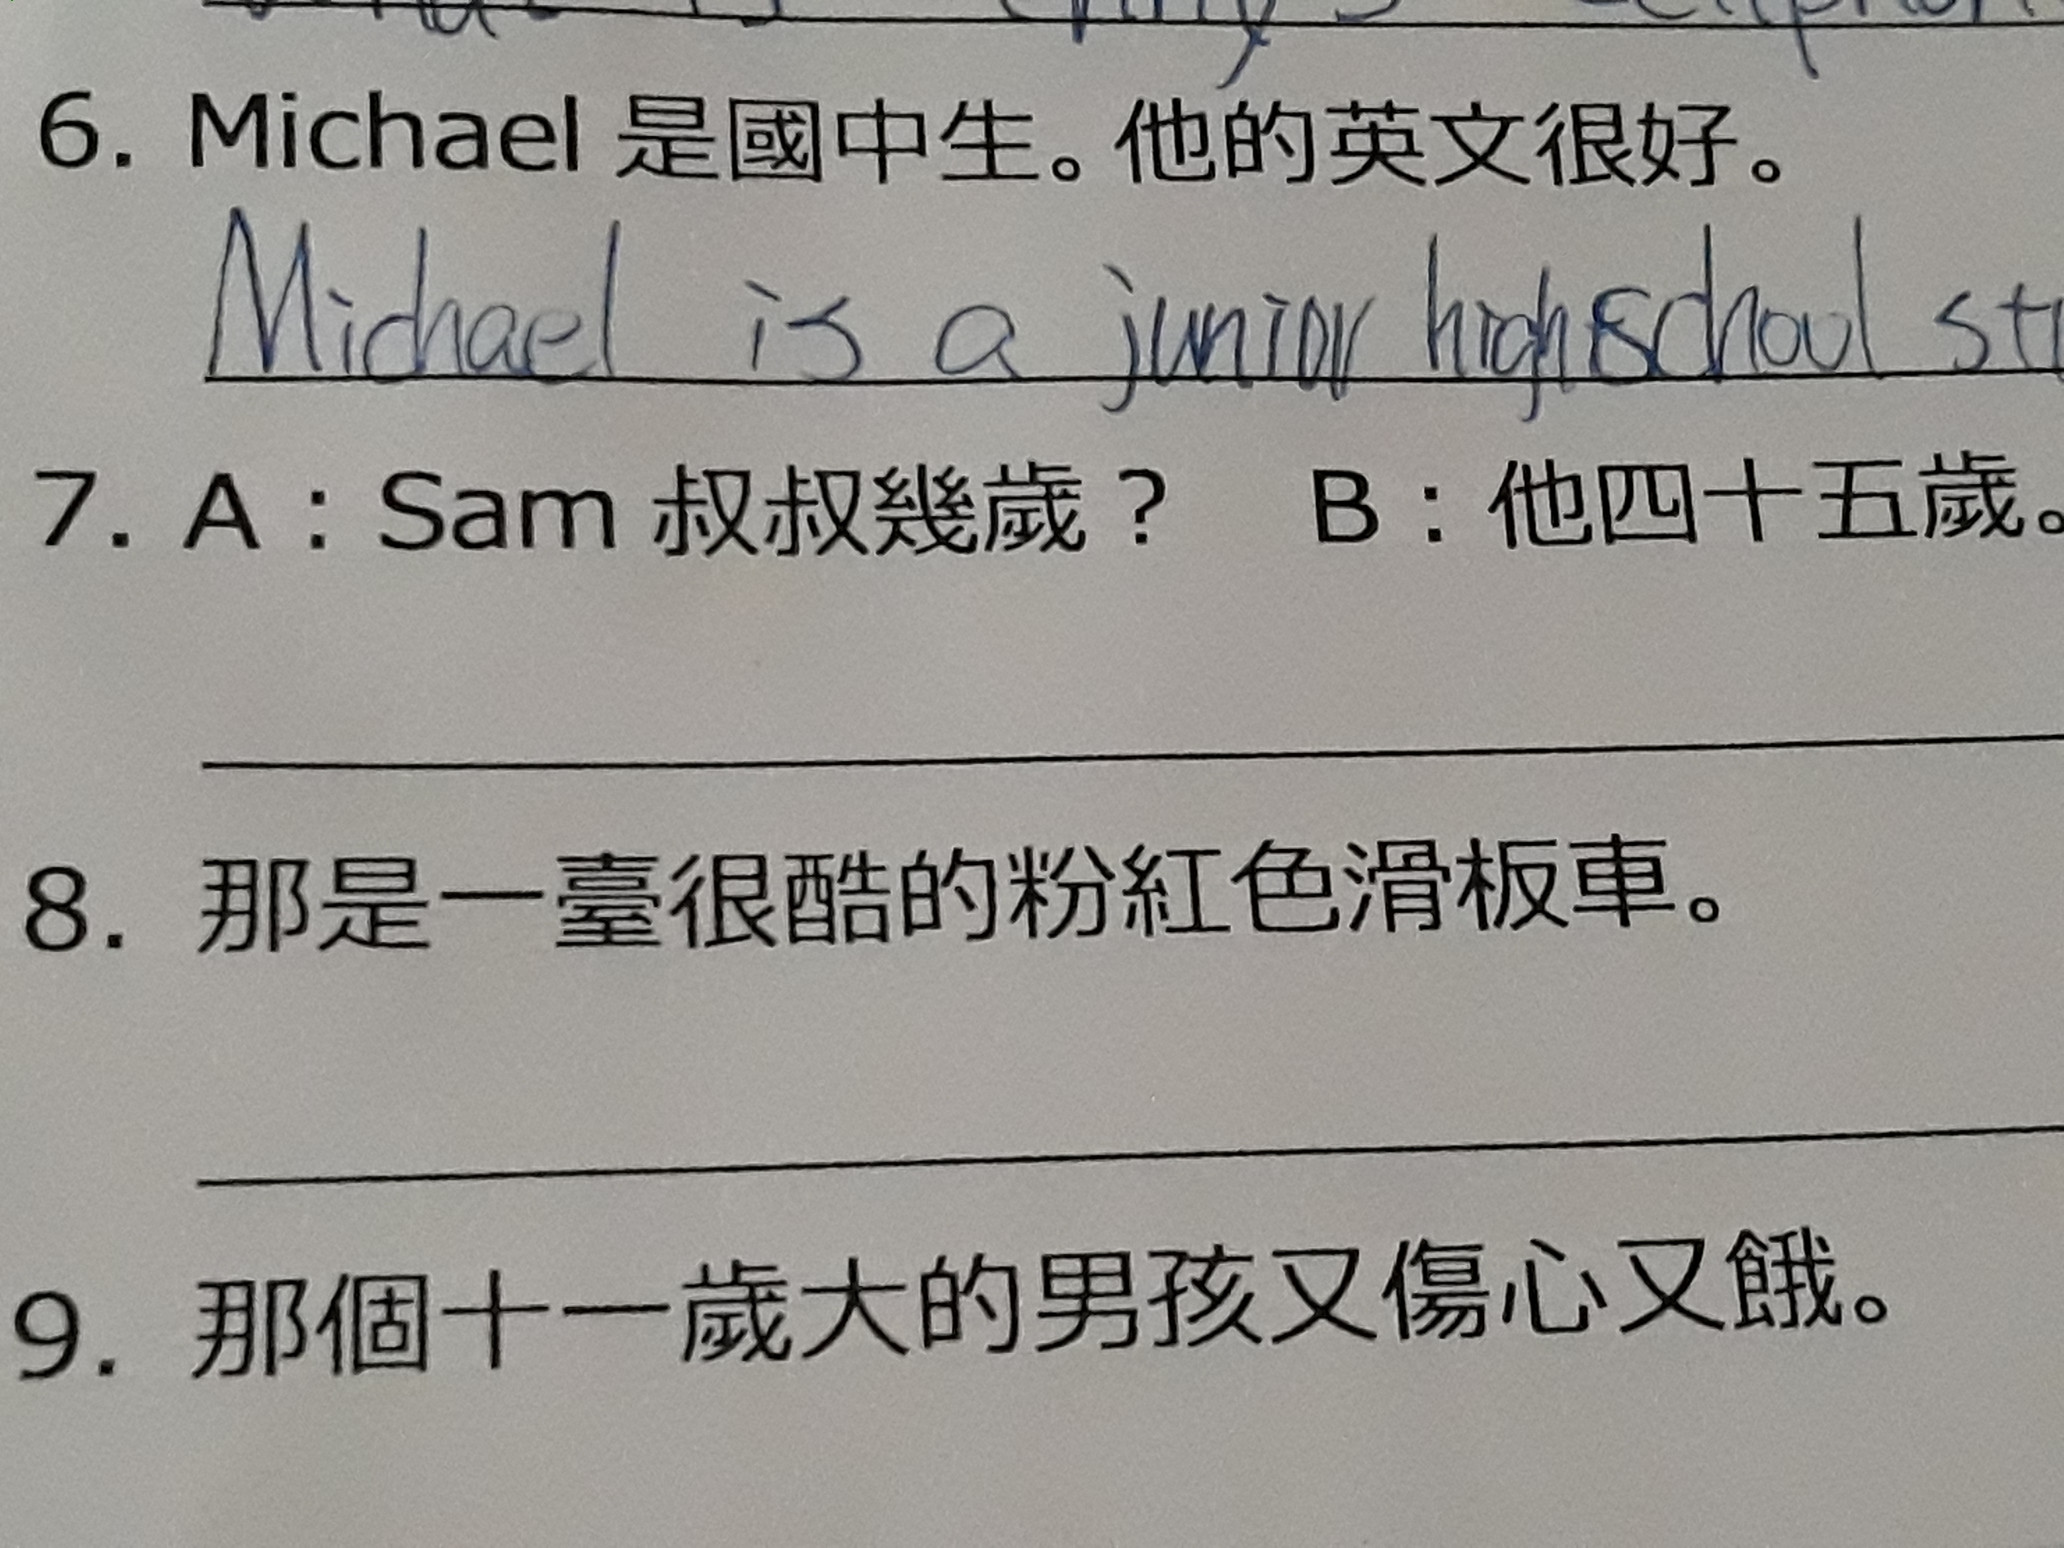 6. Michael 是國中生。他的英文很好。
Michael is a junior high school
7. A：Sam 叔叔幾歲？ B：他四十五歲。
8. 那是一臺很酷的粉紅色滑板車。
9. 那個十一歲大的男孩又傷心又餓。